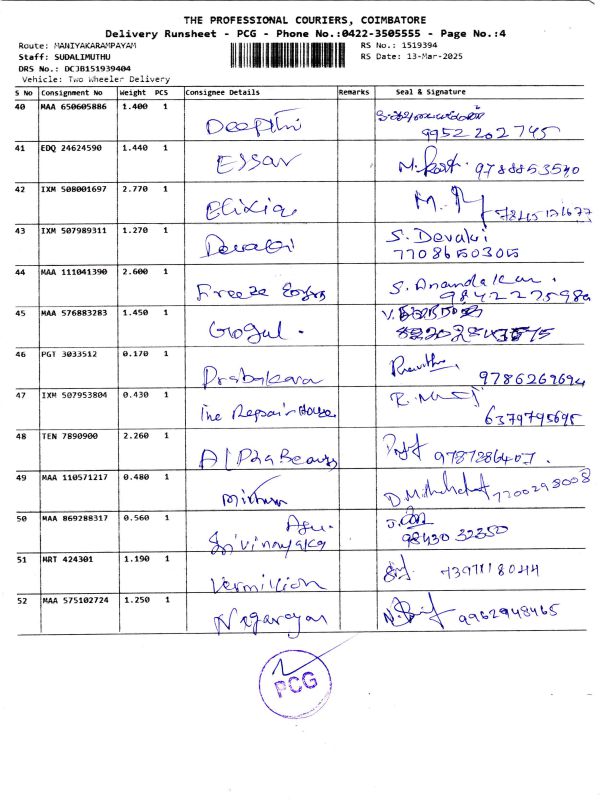 THE PROFESSIONAL COURIERS, COIMBATORE
Delivery Runsheet - PCG - Phone No.:0422-3505555 - Page No.:4
Route: MANIYAKARAMPAYAM
RS No.: 1519394
Staff: SUDALIMUTHU
RS Date: 13-Mar-2025
DRS No.: DCJB151939404
Vehicle: Two Wheeler Delivery
S No Consignment No Weight PCS Consignee Details Remarks Seal & Signature
40 MAA 650605886 1.400 1 Deepthi
9952202745
41 EDQ 24624590 1.440 1 Essar 9788853540
42 IXM 508001697 2.770 1 Elixia
43 IXM 507989311 1.270 1 Devaki S. Devaki
7708650305
44 MAA 111041390 2.600 1 Freeze S. Anandakar.
45 MAA 576883283 1.450 1 Gogul.
46 PGT 3033512 0.170 1 Prabakara 9786269694
47 IXM 507953804 0.430 1 The Repair House
6379795695
48 TEN 7890900 2.260 1 Alpha Beauty
49 MAA 110571217 0.480 1 7200298008
50 MAA 869288317 0.560 1 Sri vinayaka
98430 32350
51 MRT 424301 1.190 1 Vermilion
52 MAA 575102724 1.250 1 Nagarayan 9962948465
PCG